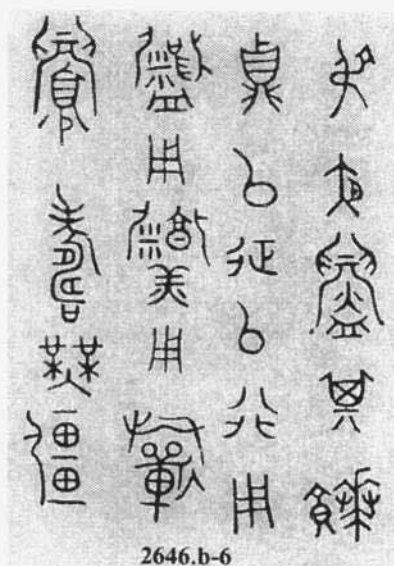 弔夜鑄其饙
鼎以征以行用
用羹用祈
眉壽無疆
2646.b-6